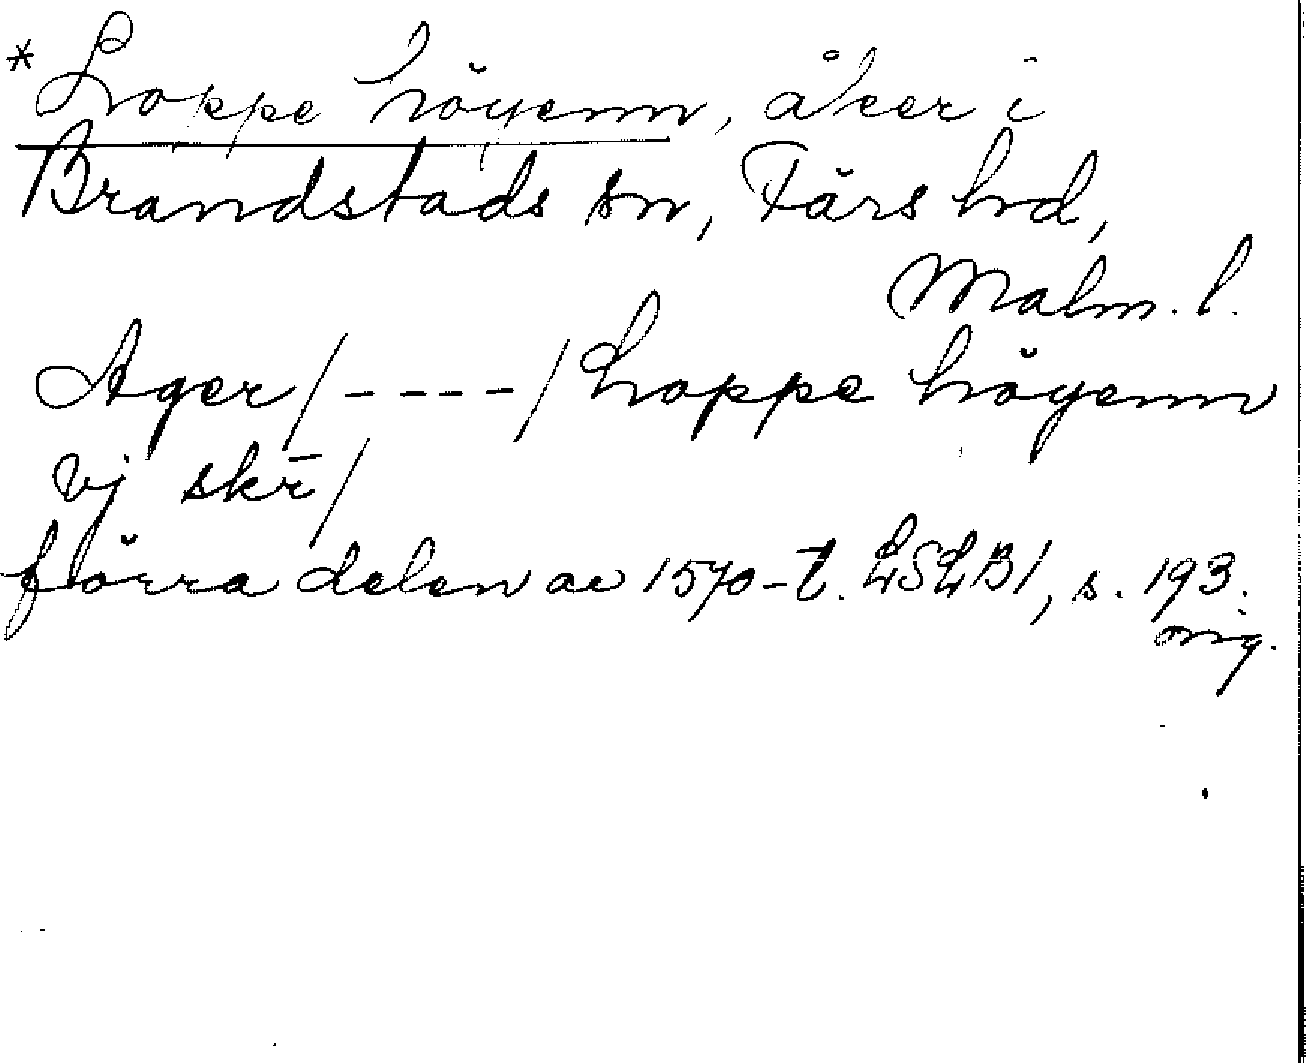 *Loppe höyenn, åker i
Brandstads sn, Färs hd,
Malm. l.
Ager /----/ Loppe höyenn
vj skr̄ /
förra delen av 1570-t. LSLB1, s. 193.
orig.